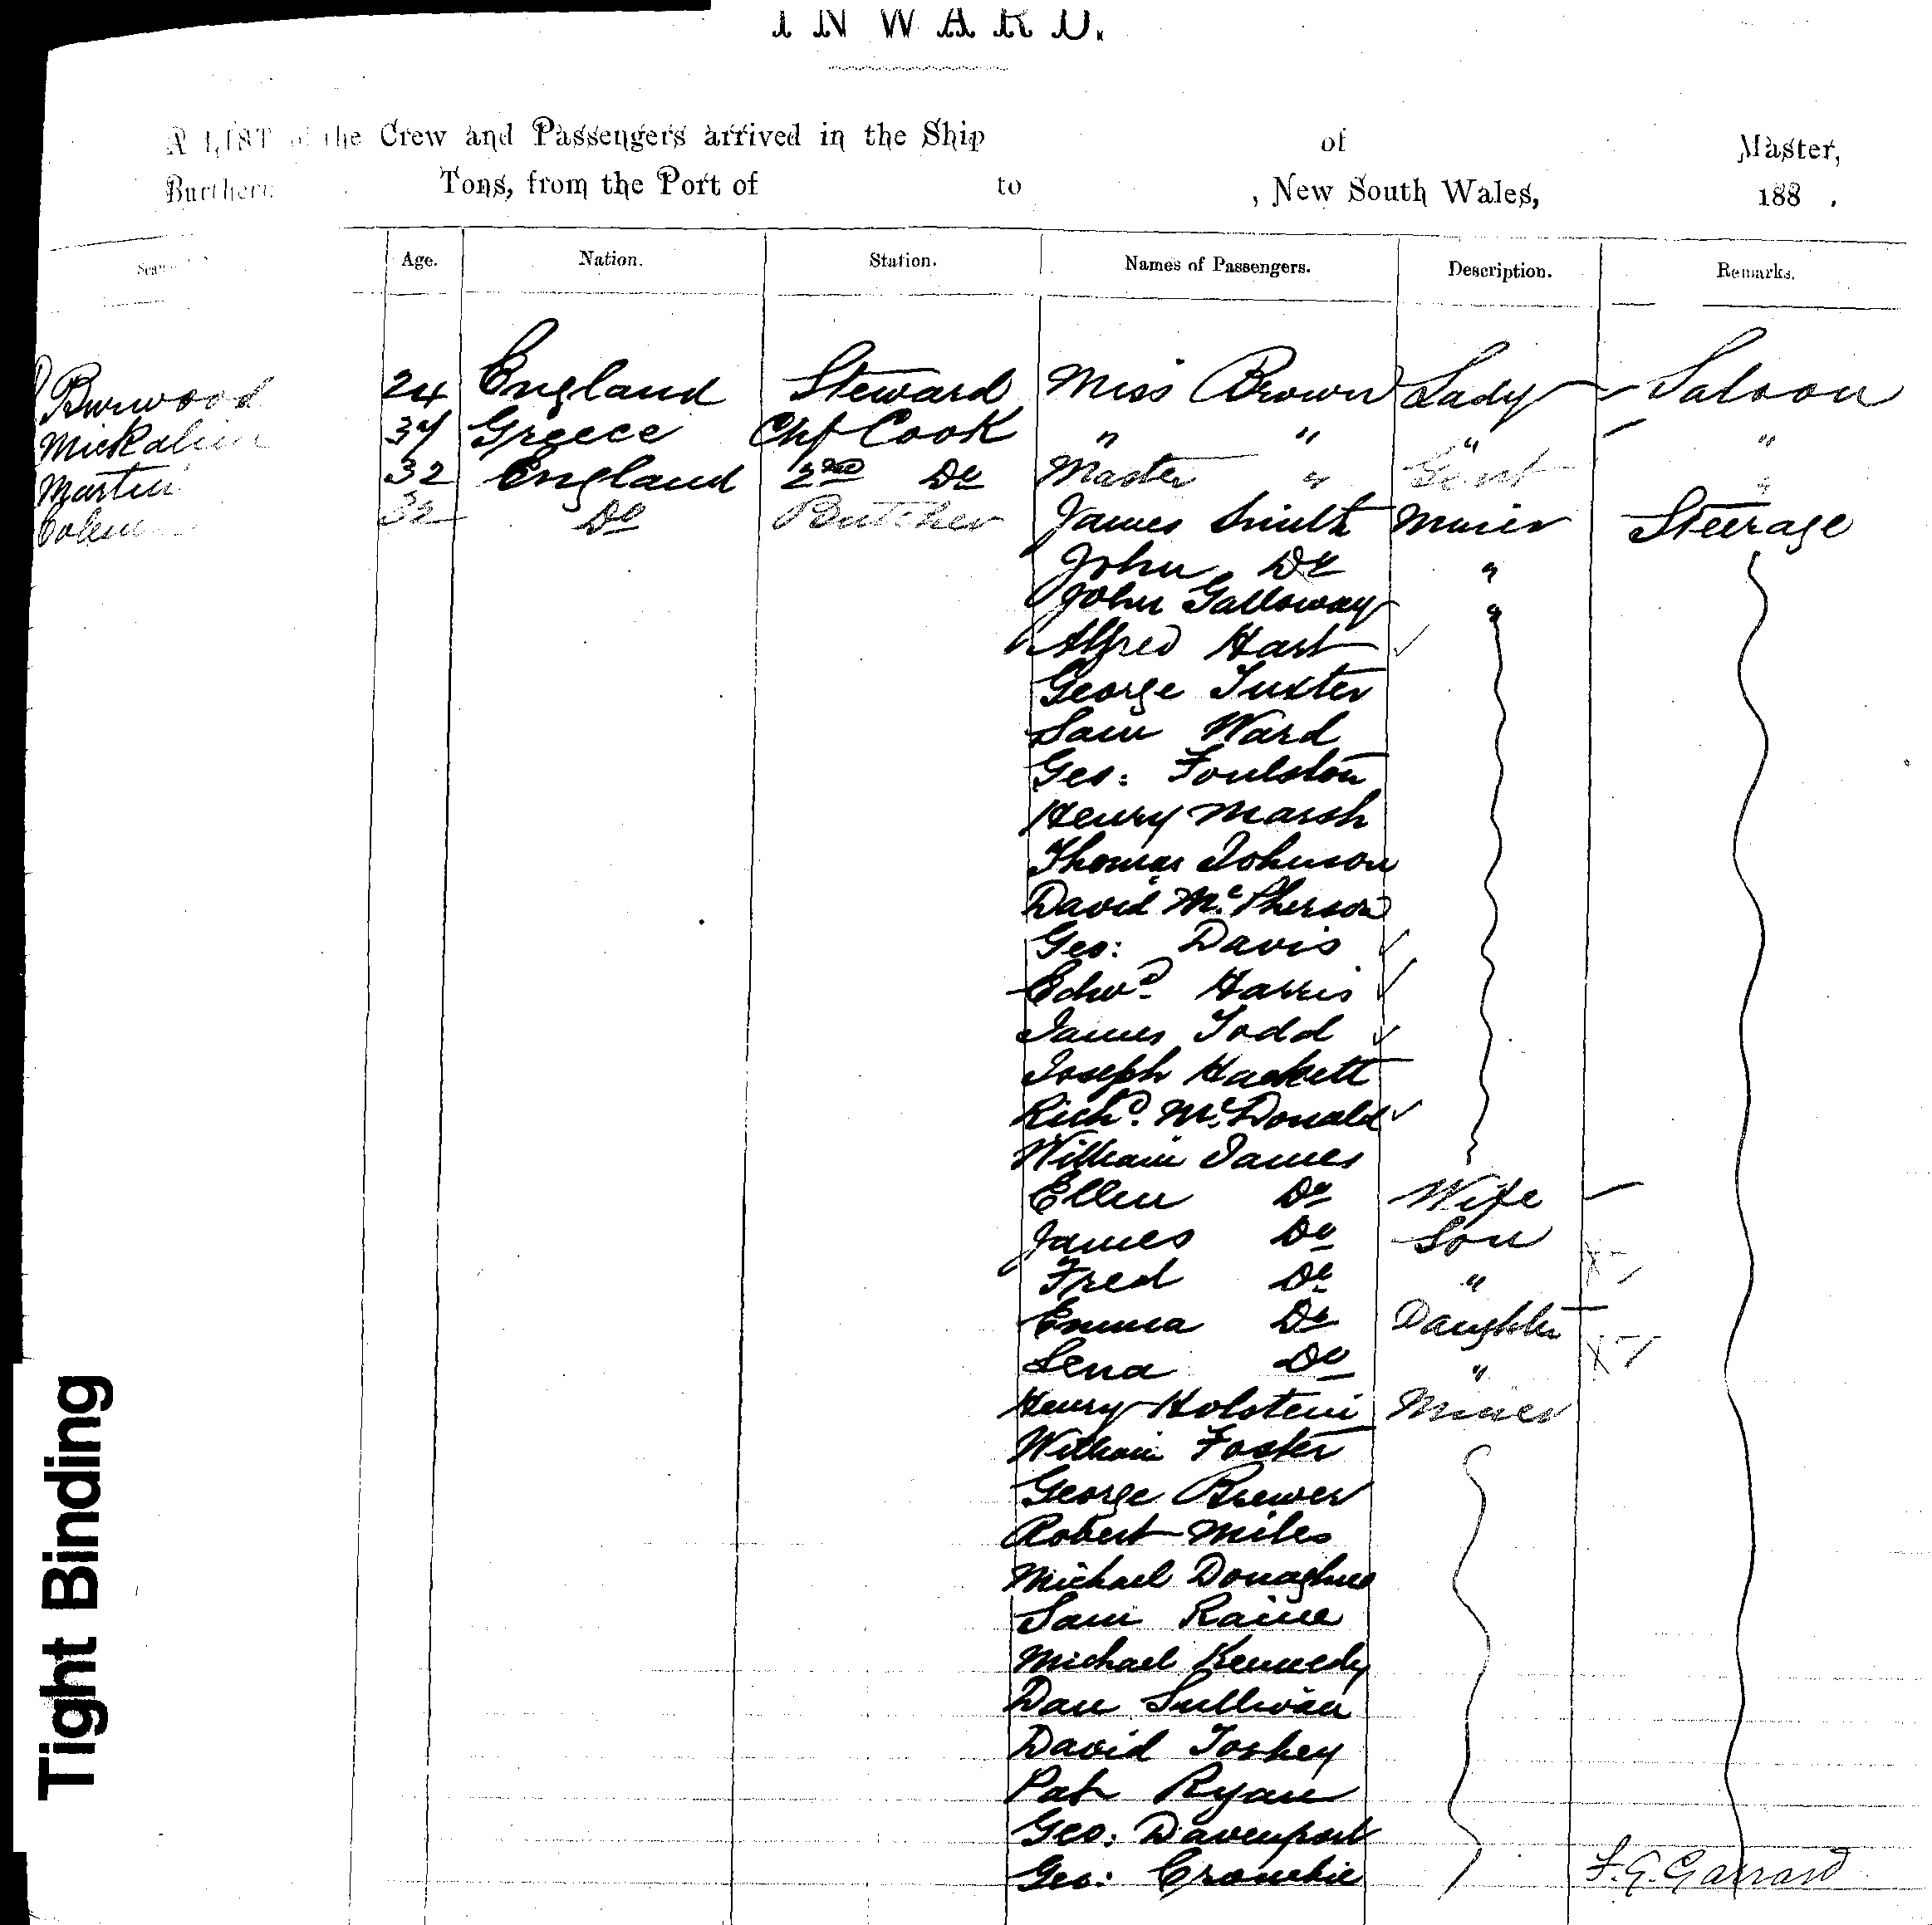 INWARD.
A LIST of the Crew and Passengers arrived in the Ship of Master,
Burthen Tons, from the Port of to , New South Wales, 188 .
Age. Nation. Station. Names of Passengers. Description. Remarks.
Burwood 24 England Steward Miss Brown Lady Saloon
37 Greece Chf Cook " " " "
Martin 32 England 2nd Do Master " Gent "
32 Do Butcher James Smith Miner Steerage
John Do "
John Galloway "
Alfred Hart ✓
George Tuxter
Sam Ward
Geo: Foulston
Henry Marsh
Thomas Johnson
David McPherson
Geo: Davis ✓
Edwd Harris ✓
James Todd ✓
Joseph Hackett
Richd. McDonald ✓
William James
Ellen Do Wife
James Do Son
Fred Do "
Emma Do Daughter
Lena Do "
Henry Holstein Miner
William Foster
George Brewer
Robert Miles
Michael Donaghue
Sam Raine
Michael Kennedy
Dan Sullivan
David Toshey
Pat Ryan
Geo: Davenport
Geo: Crombie
F. G. Garrard
Tight Binding